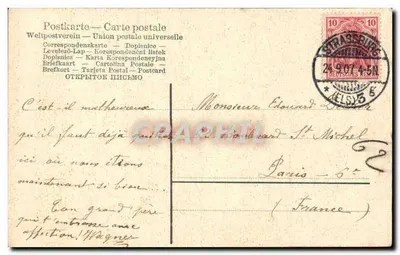 Postkarte — Carte postale
Weltpostverein — Union postale universelle
Correspondenzkarte - Dopisnice -
Levelező-Lap - Korespondenční lístek
Dopisnica - Karta Korespondencyjna
Briefkaart - Cartolina Postale -
Brefkort - Tarjeta Postal - Postcard
ОТКРЫТОЕ ПИСЬМО
10 10
STRASSBURG
24.9.07. 4-5N
* (ELS.) 5 g
C'est si malheureux
qu'il faut déjà
ici où nous étions
maintenant si bien...
Ton grand père
qui t'embrasse avec
affection! Wagner
Monsieur Edouard
Boulevard St Michel
Paris - 5e
(France)
62